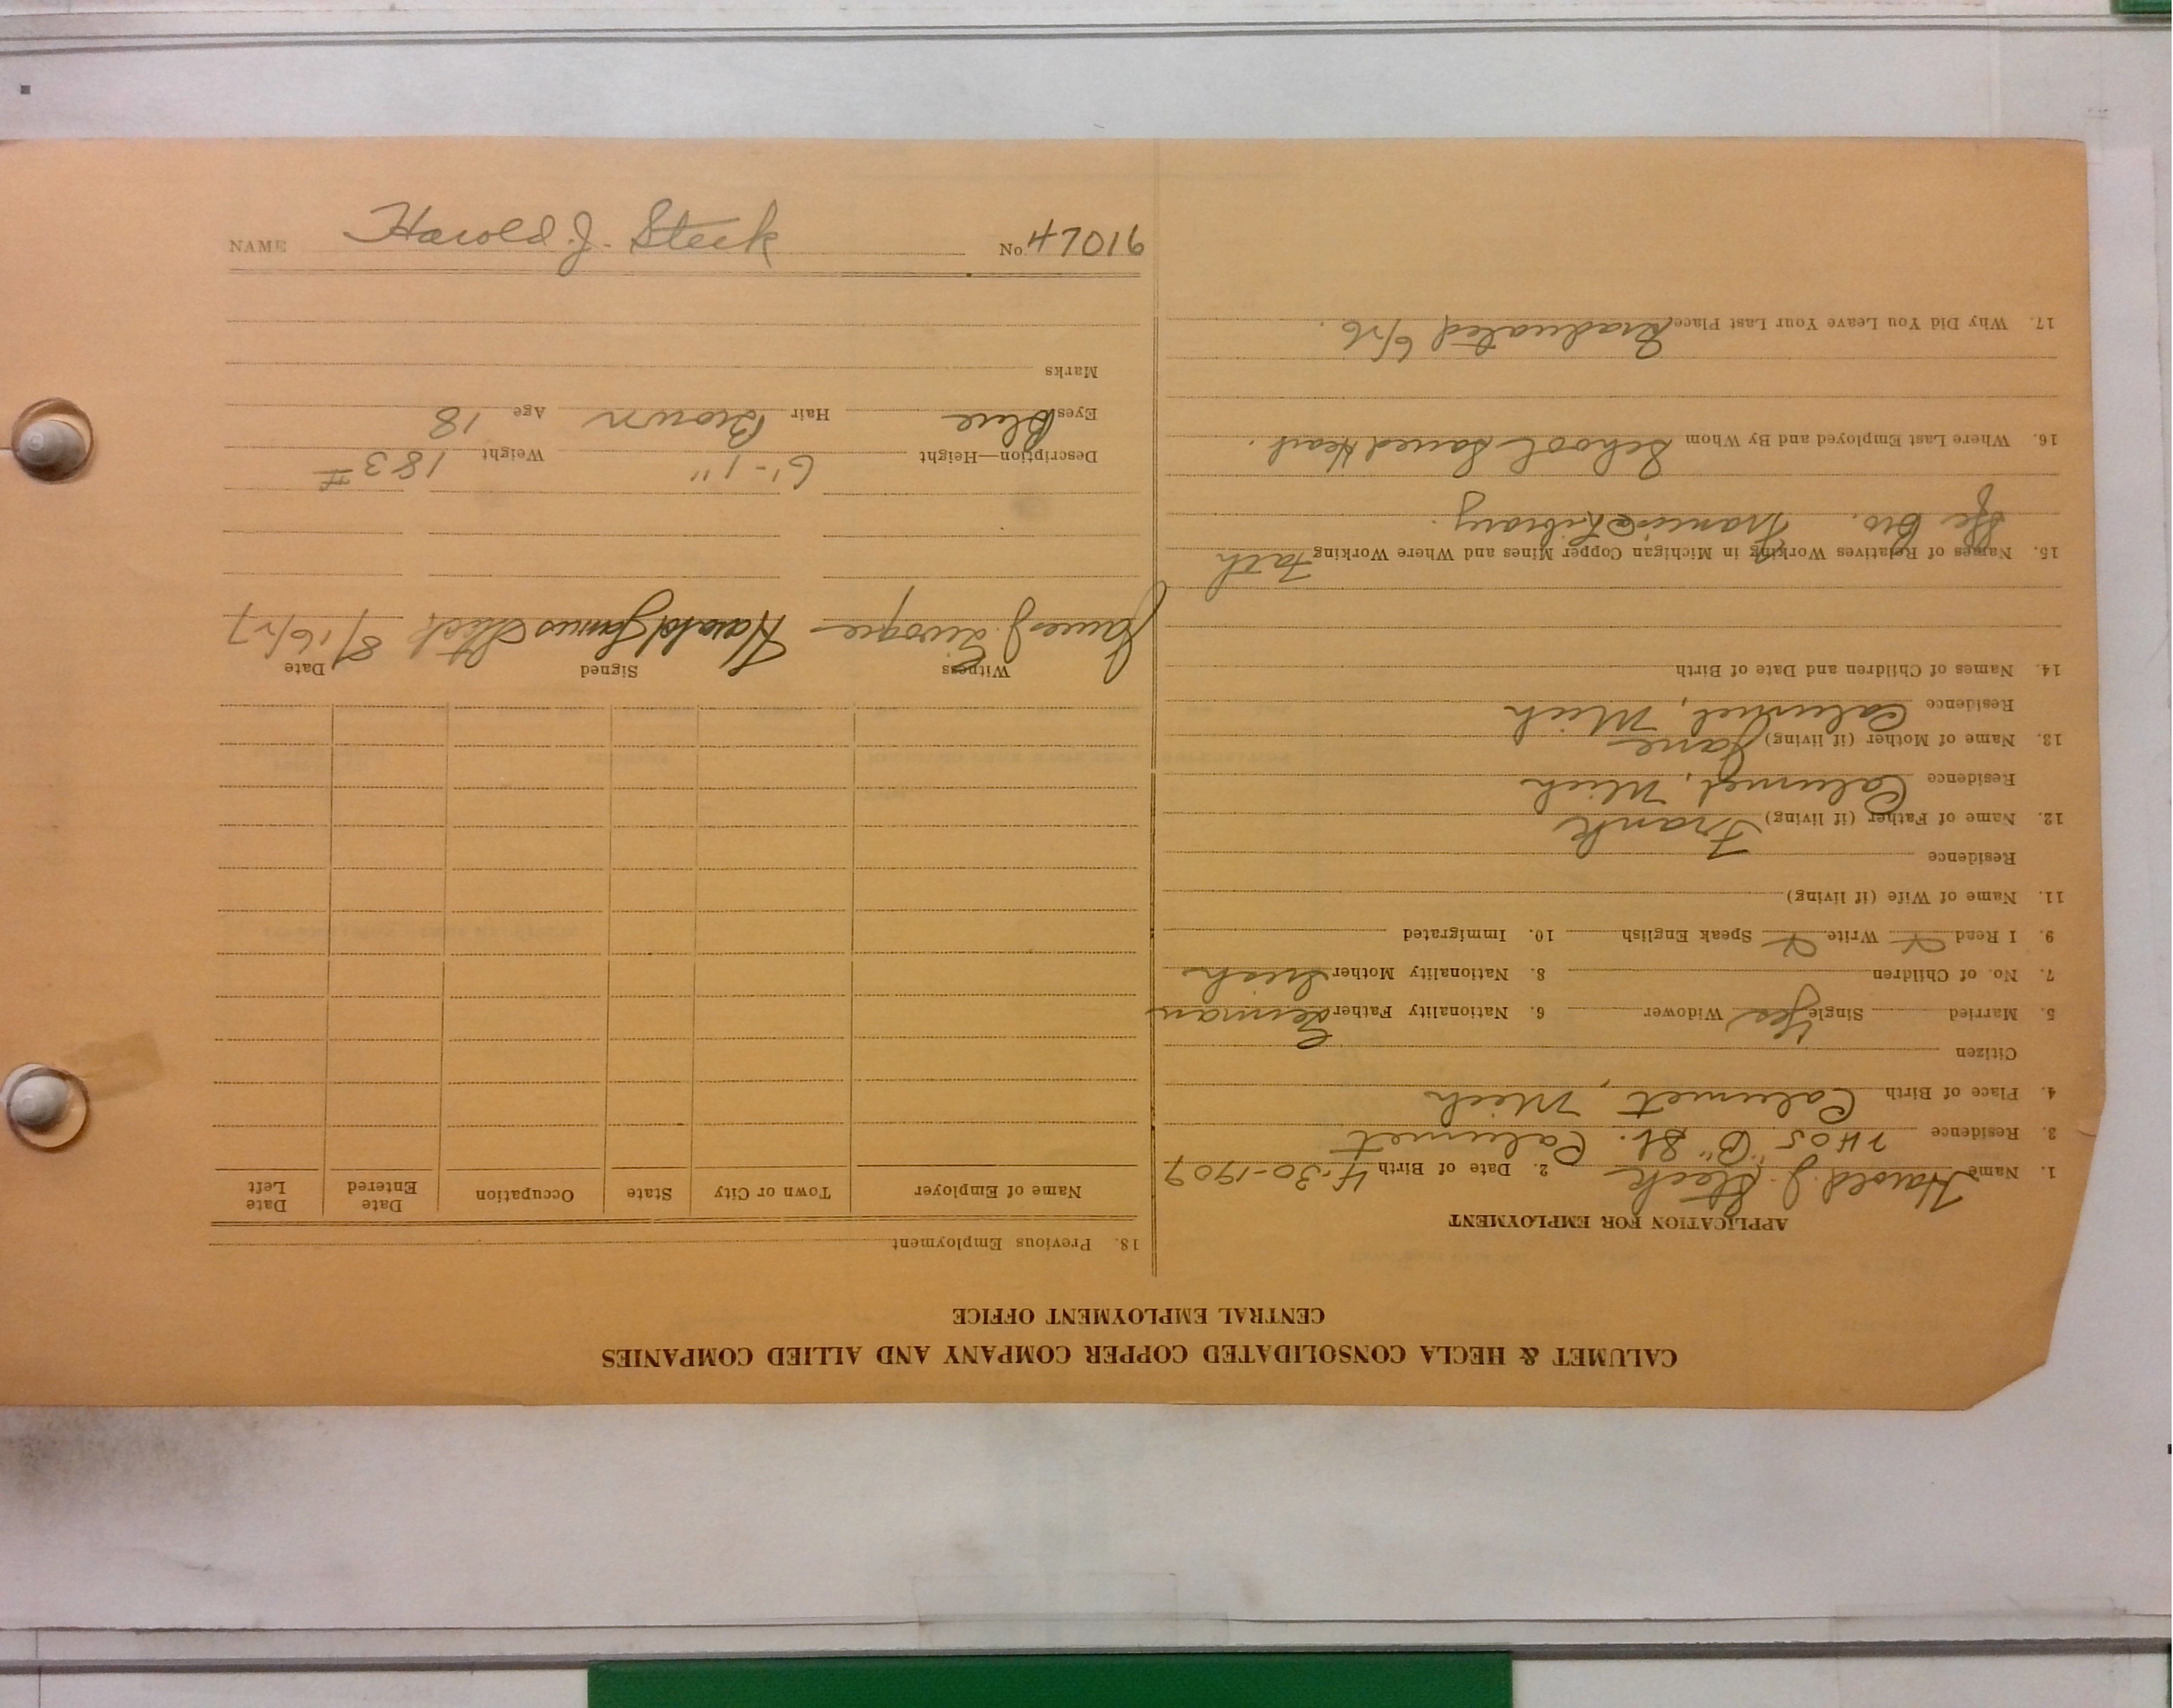 NAME Harold. J. Steck No. 47016
CALUMET & HECLA CONSOLIDATED COPPER COMPANY AND ALLIED COMPANIES
CENTRAL EMPLOYMENT OFFICE
APPLICATION FOR EMPLOYMENT
1. Name Harold J. Steck 2. Date of Birth 4-30-1909
3. Residence 2405 "B" St. Calumet
4. Place of Birth Calumet, Mich
Citizen
5. Married Single Yes Widower 6. Nationality Father German
7. No. of Children 8. Nationality Mother Irish
9. I Read Write Speak English 10. Immigrated
11. Name of Wife (if living)
Residence
12. Name of Father (if living) Frank
Residence Calumet, Mich
13. Name of Mother (if living) Jane
Residence Calumet, Mich
14. Names of Children and Date of Birth
15. Names of Relatives Working in Michigan Copper Mines and Where Working Fath
Bro. Francis Library.
16. Where Last Employed and By Whom School Sacred Heart.
17. Why Did You Leave Your Last Place Graduated 6/26.
18. Previous Employment
Name of Employer Town or City State Occupation Date Entered Date Left
Witness Signed Date
James J. Harold James Steck 8/16/27
Description—Height 6'-1" Weight 183 #
Eyes Blue Hair Brown Age 18
Marks